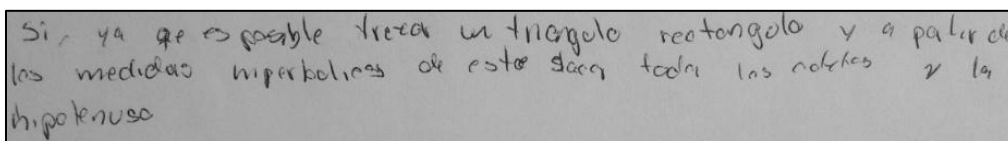 Si, ya qe es posible trezar un triangulo rectangulo y a patir de
las medidas hiperbolicas de este sacar toda las y la
hipotenusa